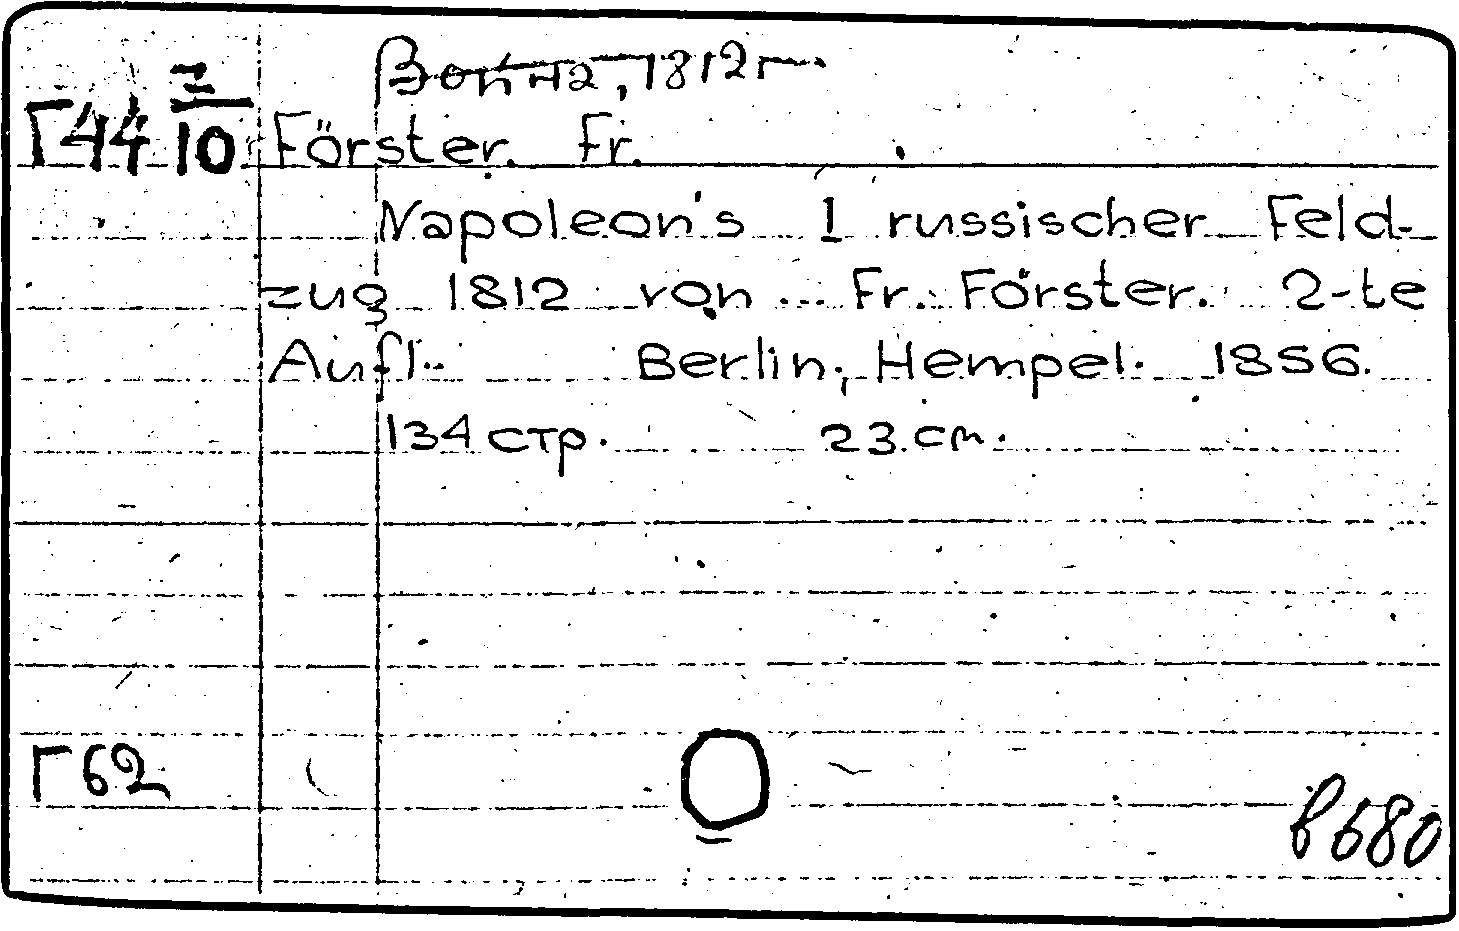 Война, 1812г.
Г44 10 Förster. Fr.
Napoleon's I russischer Feld-
zug 1812 von ... Fr. Förster. 2-te
Aufl. Berlin, Hempel. 1856.
134 стр. 23 см.
Г62
в 680